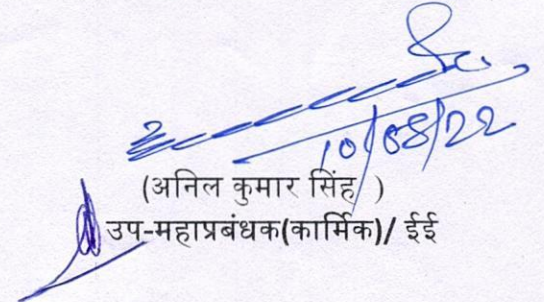 10/08/22
(अनिल कुमार सिंह )
उप-महाप्रबंधक(कार्मिक)/ ईई